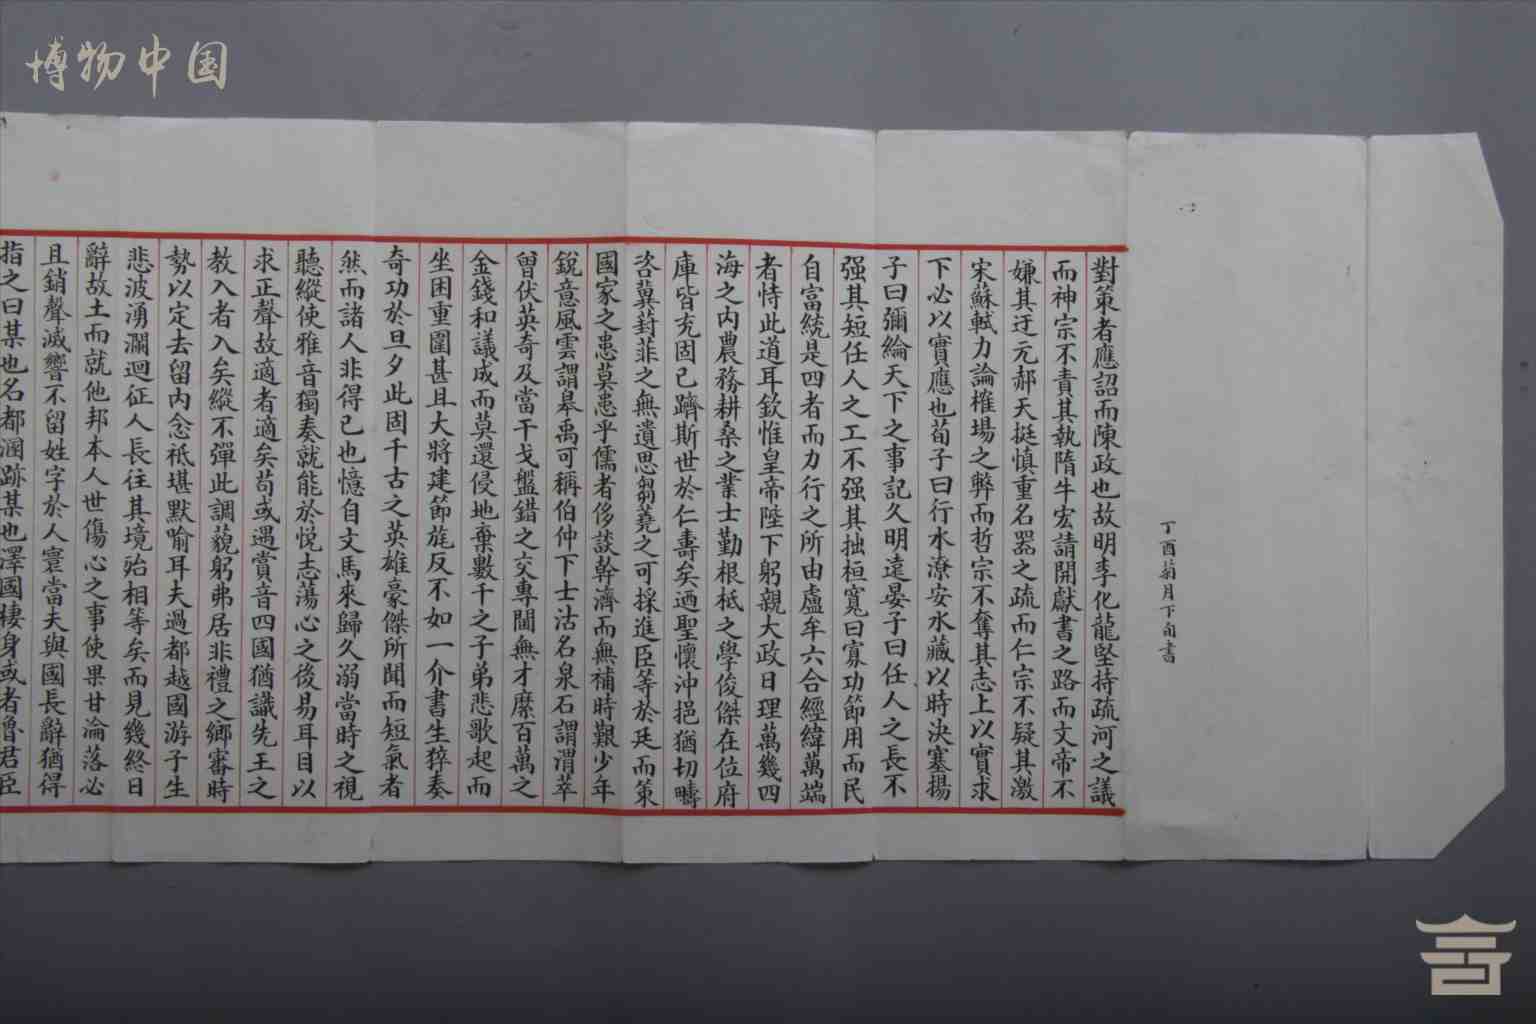 博物中国
丁酉菊月下旬書
對策者應詔而陳政也故明李化龍堅持疏河之議
而神宗不責其執隋牛宏請開獻書之路而文帝不
嫌其迂元郝天挺慎重名器之疏而仁宗不疑其激
宋蘇軾力論榷場之弊而哲宗不奪其志上以實求
下必以實應也荀子曰行水潦安水藏以時決塞揚
子曰彌綸天下之事記久明遠晏子曰任人之長不
强其短任人之工不强其拙桓寬曰寡功節用而民
自富統是四者而力行之所由盧牟六合經緯萬端
者恃此道耳欽惟皇帝陛下躬親大政日理萬幾四
海之内農務耕桑之業士勤根柢之學俊傑在位府
庫皆充固已躋斯世於仁壽矣迺聖懷沖挹猶切疇
咨冀葑菲之無遺思芻蕘之可採進臣等於廷而策
國家之患莫患乎儒者侈談幹濟而無補時艱少年
銳意風雲謂皋禹可稱伯仲下士沽名泉石謂渭莘
曾伏英奇及當干戈盤錯之交專閫無才縻百萬之
金錢和議成而莫還侵地棄數千之子弟悲歌起而
坐困重圍甚且大將建節旄反不如一介書生猝奏
奇功於旦夕此固千古之英雄豪傑所聞而短氣者
然而諸人非得已也憶自文馬來歸久溺當時之視
聽縱使雅音獨奏就能於悅志蕩心之後易耳目以
求正聲故適者適矣苟或遇賞音四國猶識先王之
教入者入矣縱不彈此調藐躬弗居非禮之鄉審時
勢以定去留内念祗堪默喻耳夫過都越國游子生
悲波湧瀾迴征人長往其境殆相等矣而見幾終日
辭故土而就他邦本人世傷心之事使果甘淪落必
且銷聲滅響不留姓字於人寰當夫與國長辭猶得
指之曰某也名都溷跡某也澤國棲身或者魯君臣